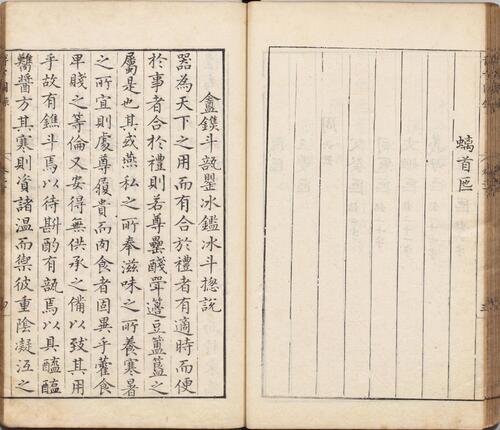 螭首匜
盦鐎斗瓿罌冰鑑冰斗摠說
器為天下之用而有合於禮者有適時而便
於事者合於禮則若尊罍醆斝籩豆簠簋之
屬是也其或燕私之所奉滋味之所養寒暑
之所宜則處尊履貴而肉食者固異乎藿食
卑賤之等倫又安得無供承之備以致其用
乎故有鐎斗焉以待斟酌有瓿焉以具醯醢
臡醬方其寒則資諸溫而禦彼重陰凝沍之